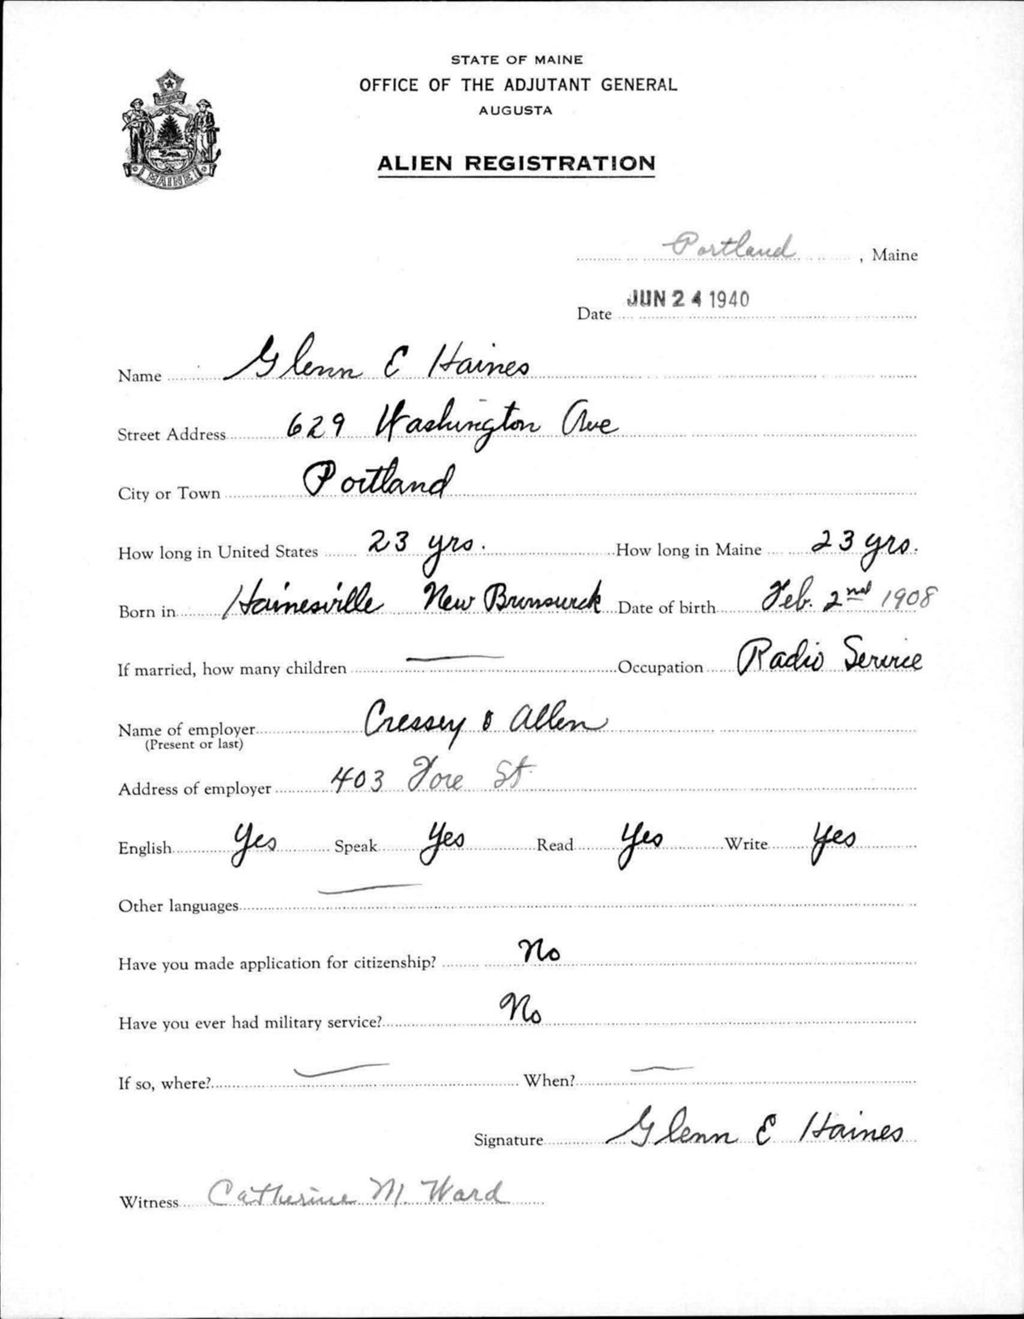 STATE OF MAINE
OFFICE OF THE ADJUTANT GENERAL
AUGUSTA
ALIEN REGISTRATION
MAINE
Portland, Maine
Date JUN 24 1940
Name Glenn E Haines
Street Address 629 Washington Ave
City or Town Portland
How long in United States 23 yrs. How long in Maine 23 yrs.
Born in Hainesville New Brunswick Date of birth Feb. 2nd 1908
If married, how many children — Occupation Radio Service
Name of employer Cressey & Allen
(Present or last)
Address of employer 403 Fore St
English Yes Speak Yes Read Yes Write Yes
Other languages —
Have you made application for citizenship? No
Have you ever had military service? No
If so, where? — When? —
Signature Glenn E Haines
Witness Catherine M. Ward